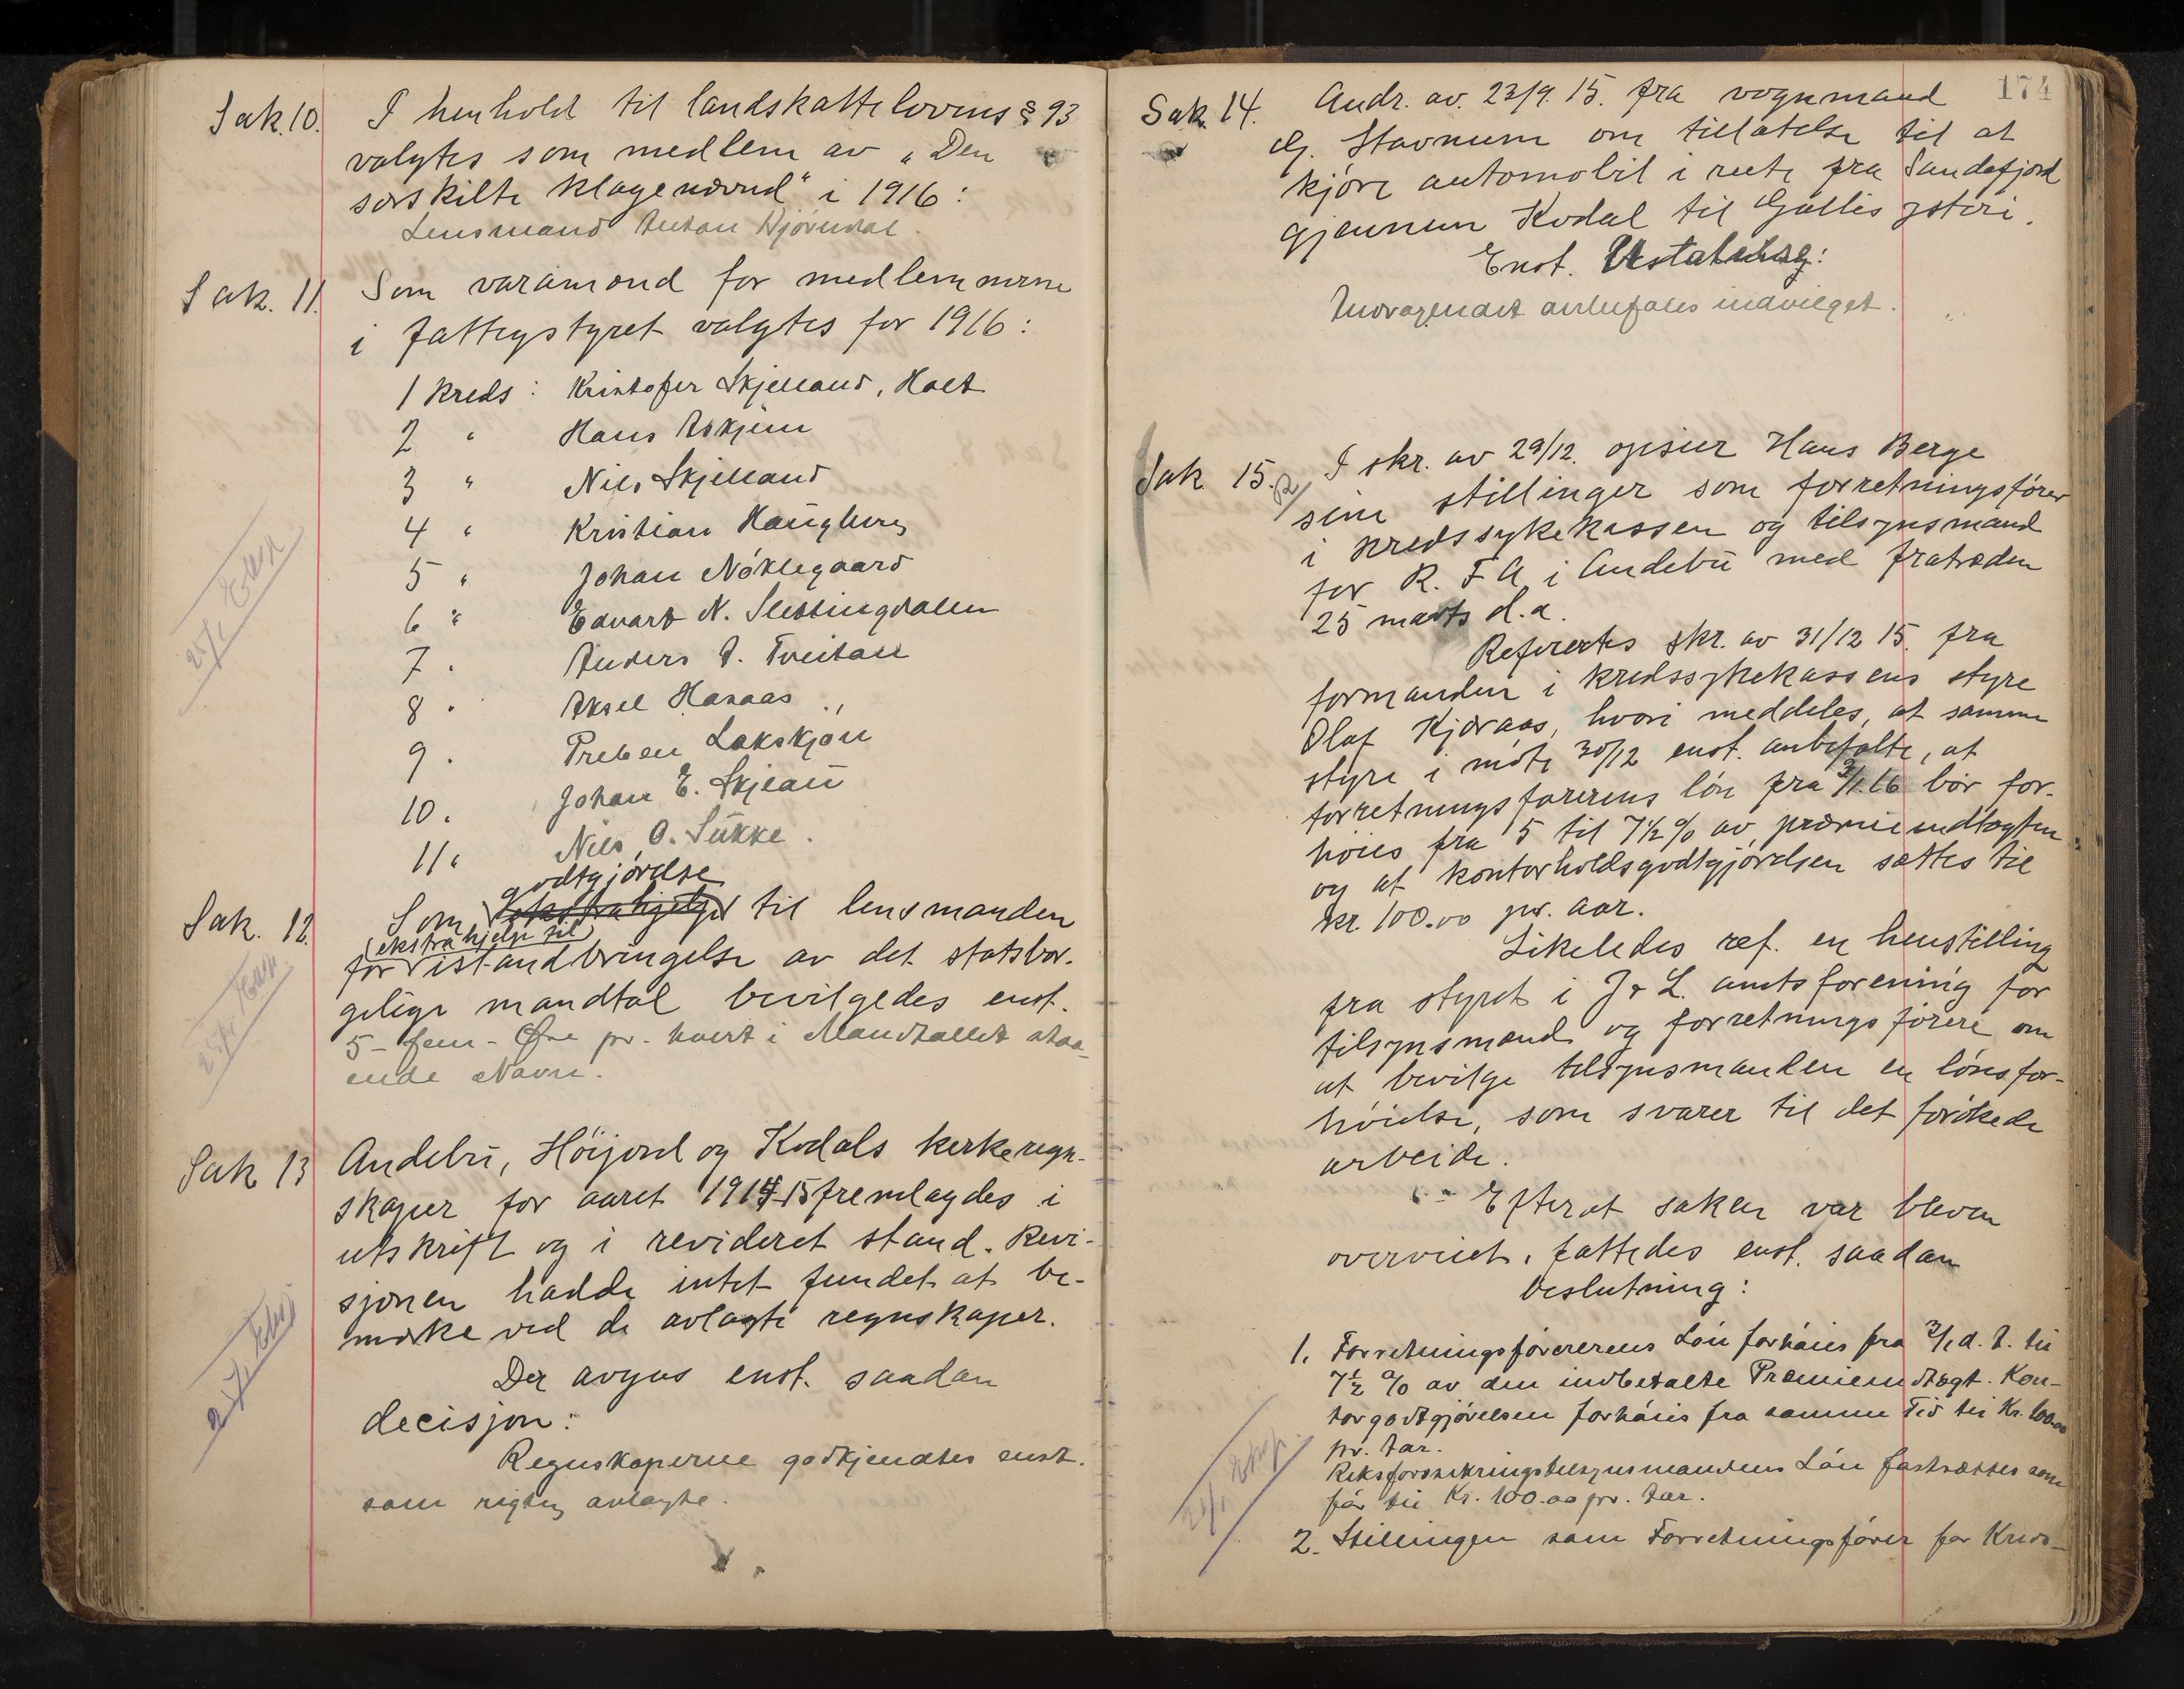 Sak. 10. I henhold til landskattelovens § 93
valgtes som medlem av „Den
særskilte klagenævnd" i 1916:
Lensmand Anton Bjørndal.
Sak. 11. Som varamænd for medlemmerne
i fattigstyret valgtes for 1916:
1 Kreds: Kristofer Skjelland, Holt
2 " Hans Askjem
3 " Nils Skjelland
4 " Kristian Haugberg
5 " Johan Nøklegaard
6 " Edvart N. Slettingdalen
7 . Anders A. Tveitan
8 . Aksel Hasaas
9 . Preben Lakskjøn
10 . Johan E. Skjeau
11 " Nils O. Sukke.
godtgjørelse
Sak. 12. Som til lensmanden
(ekstrahjelp til)
for istandbringelse av det statsbor-
gelige mandtal bevilgedes enst.
5 - fem - Øre pr. hvert i Mandtallet staa-
ende Navn.
Sak 13 Andebu, Höijord og Kodals kirkeregn-
skaper for aaret 1914-15 fremlagdes i
utskrift og i revideret stand. Revi-
sjonen hadde intet fundet at be-
merke ved de avlagte regnskaper.
Der avgaves enst. saadan
decisjon:
Regnskaperne godkjendtes enst.
som rigtig avlagte.
174
Sak. 14. Andr. av. 23/9. 15. fra vognmand
G. Stavnum om tillatelse til at
kjøre automobil i rute fra Sandefjord
gjennem Kodal til Gallis ysteri.
Enst.
Andragendet anbefales indvilget.
Sak 15. I skr. av 29/12. opsier Hans Berge
sine stillinger som forretningsfører
i kredssykekassen og tilsynsmand
for R. F A i Andebu med fratræden
25 marts d.a.
Refereertes skr. av 31/12 15. fra
formanden i kredssykekassens styre
Olaf Kjæraas, hvori meddeles, at samme
styre i møte 30/12 enst. anbefalte, at
forretningsførerens løn fra 3/1.16 bör for-
höies fra 5 til 7½ % av præmieindtægten
og at kontorholdsgodtgjørelsen sættes til
kr. 100.00 pr. aar.
Likeledes ref. en henstilling
fra styret i J & L. amtsforening for
tilsynsmænd og forretningsførere om
at bevilge tilsynsmanden en lønsfor-
höielse, som svarer til det forökede
arbeide.
Efterat saken var bleven
overveiet, fattedes enst. saadan
beslutning:
1. Forretningsførererens Løn forhøies fra 3/1 d. A. til
7½ % av den indbetalte Præmieindtægt. Kon-
torgodtgjørelsen forhøies fra samme Tid til Kr. 100.00
pr. Aar.
Riksforsikringstilsynsmandens Løn fastsættes som
før til Kr. 100.00 pr. Aar.
2. Stillingen som Forretningsfører for Kreds-